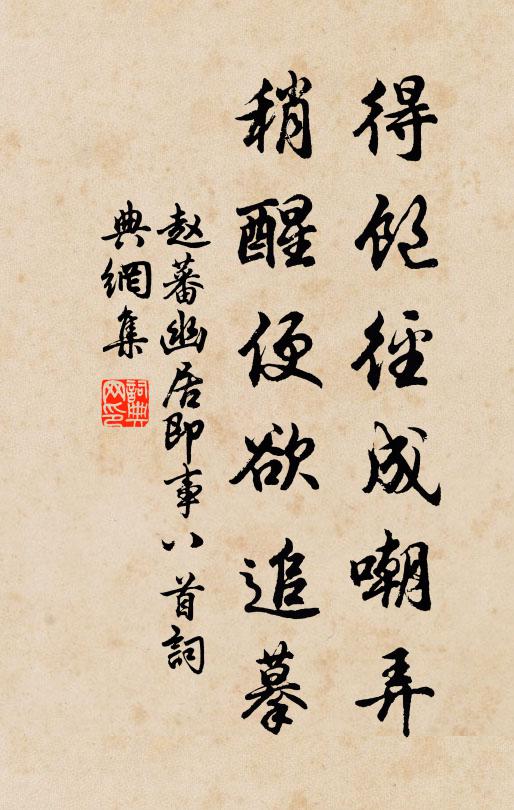 得飽徑成嘲弄
稍醒便欲追摹
赵蕃幽居即事八首詞
典網集
詞典
网印